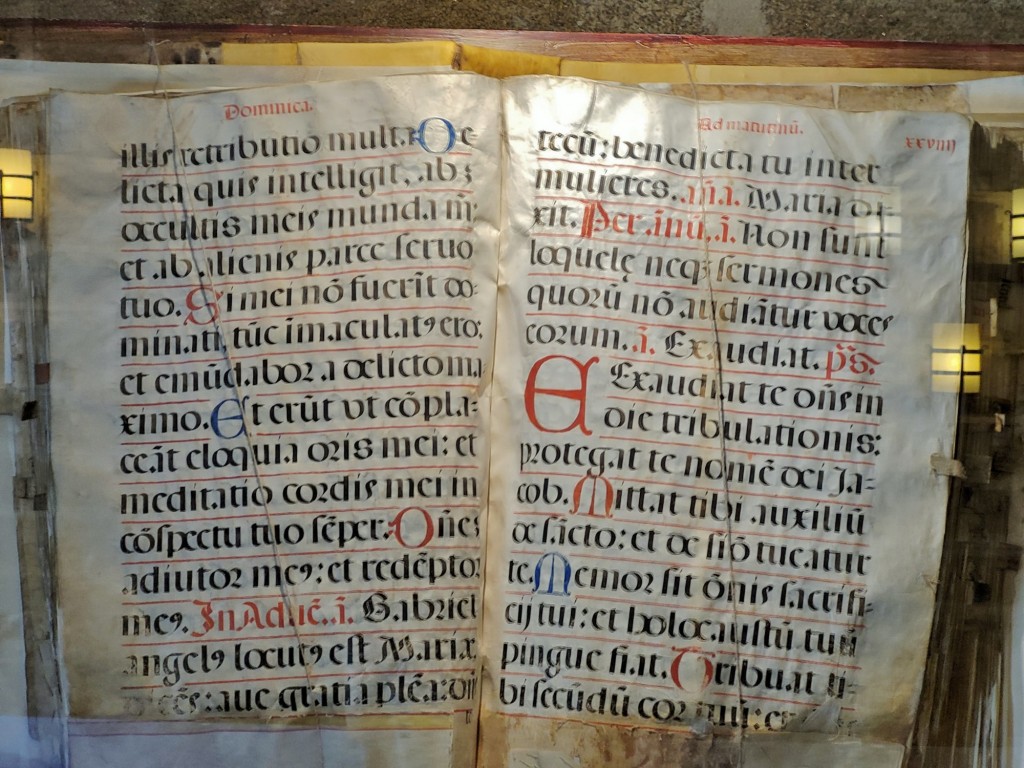 Dominica.
illis retributio multa. De
licta quis intelligit, ab
occultis meis munda m̄:
et ab alienis parce seruo
tuo. Si mei nō fuerīt do
minati, tūc īmaculatꝰ ero:
et emūdabor a delicto ma
ximo. Et erūt vt cōpla=
ceāt eloquia oris mei: et
meditatio cordis mei in
cōspectu tuo sēper. Dñe
adiutor meꝰ: et redēptor
meꝰ. In Aduē. ī. Gabriel
angelꝰ locutꝰ est Mariæ
aue gratia plēa: dn̄
Ad matutinū. xxviiij
tecū: benedicta tu inter
mulieres. añ. ī. Maria di=
xit. Per .inū. ī. Non sunt
loquelę neqꝫ sermones
quorū nō audiātur voces
eorum. ī. Exaudiat. p̄s.
Exaudiat te dñs in
die tribulationis:
protegat te nomē dei Ja=
cob. Mittat tibi auxiliū
de sācto: et de siō tueatur
te. Memor sit ōnis sacrifi=
cij tui: et holocaustū tuū
pingue fiat. Tribuat ti=
bi secūdū cor tuū: et